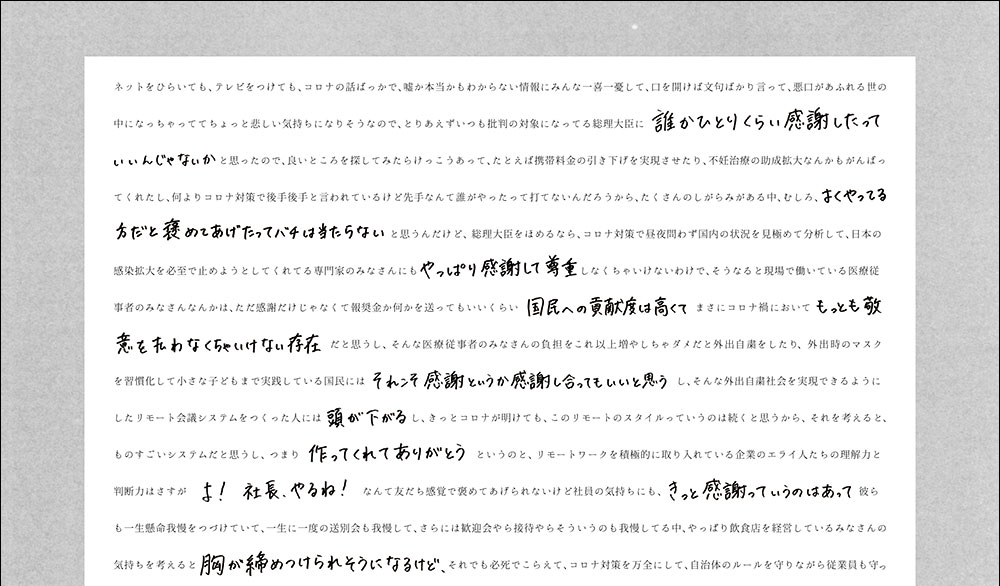 ネットをひらいても、テレビをつけても、コロナの話ばっかで、嘘か本当かもわからない情報にみんな一喜一憂して、口を開けば文句ばかり言って、悪口があふれる世の
中になっちゃっててちょっと悲しい気持ちになりそうなので、とりあえずいつも批判の対象になってる総理大臣に 誰かひとりくらい感謝したって
いいんじゃないか と思ったので、良いところを探してみたらけっこうあって、たとえば携帯料金の引き下げを実現させたり、不妊治療の助成拡大なんかもがんばっ
てくれたし、何よりコロナ対策で後手後手と言われているけど先手なんて誰がやったって打てないんだろうから、たくさんのしがらみがある中、むしろ、よくやってる
方だと褒めてあげたってバチは当たらない と思うんだけど、総理大臣をほめるなら、コロナ対策で昼夜問わず国内の状況を見極めて分析して、日本の
感染拡大を必至で止めようとしてくれてる専門家のみなさんにも やっぱり感謝して尊重 しなくちゃいけないわけで、そうなると現場で働いている医療従
事者のみなさんなんかは、ただ感謝だけじゃなくて報奨金か何かを送ってもいいくらい 国民への貢献度は高くて まさにコロナ禍において もっとも敬
意を払わなくちゃいけない存在 だと思うし、そんな医療従事者のみなさんの負担をこれ以上増やしちゃダメだと外出自粛をしたり、外出時のマスク
を習慣化して小さな子どもまで実践している国民には それこそ感謝というか感謝し合ってもいいと思う し、そんな外出自粛社会を実現できるように
したリモート会議システムをつくった人には 頭が下がる し、きっとコロナが明けても、このリモートのスタイルっていうのは続くと思うから、それを考えると、
ものすごいシステムだと思うし、つまり 作ってくれてありがとう というのと、リモートワークを積極的に取り入れている企業のエライ人たちの理解力と
判断力はさすが よ! 社長、やるね! なんて友だち感覚で褒めてあげられないけど社員の気持ちにも、きっと感謝っていうのはあって 彼ら
も一生懸命我慢をつづけていて、一生に一度の送別会も我慢して、さらには歓迎会やら接待やらそういうのも我慢してる中、やっぱり飲食店を経営しているみなさんの
気持ちを考えると 胸が締めつけられそうになるけど、それでも必死でこらえて、コロナ対策を万全にして、自治体のルールを守りながら従業員も守っ